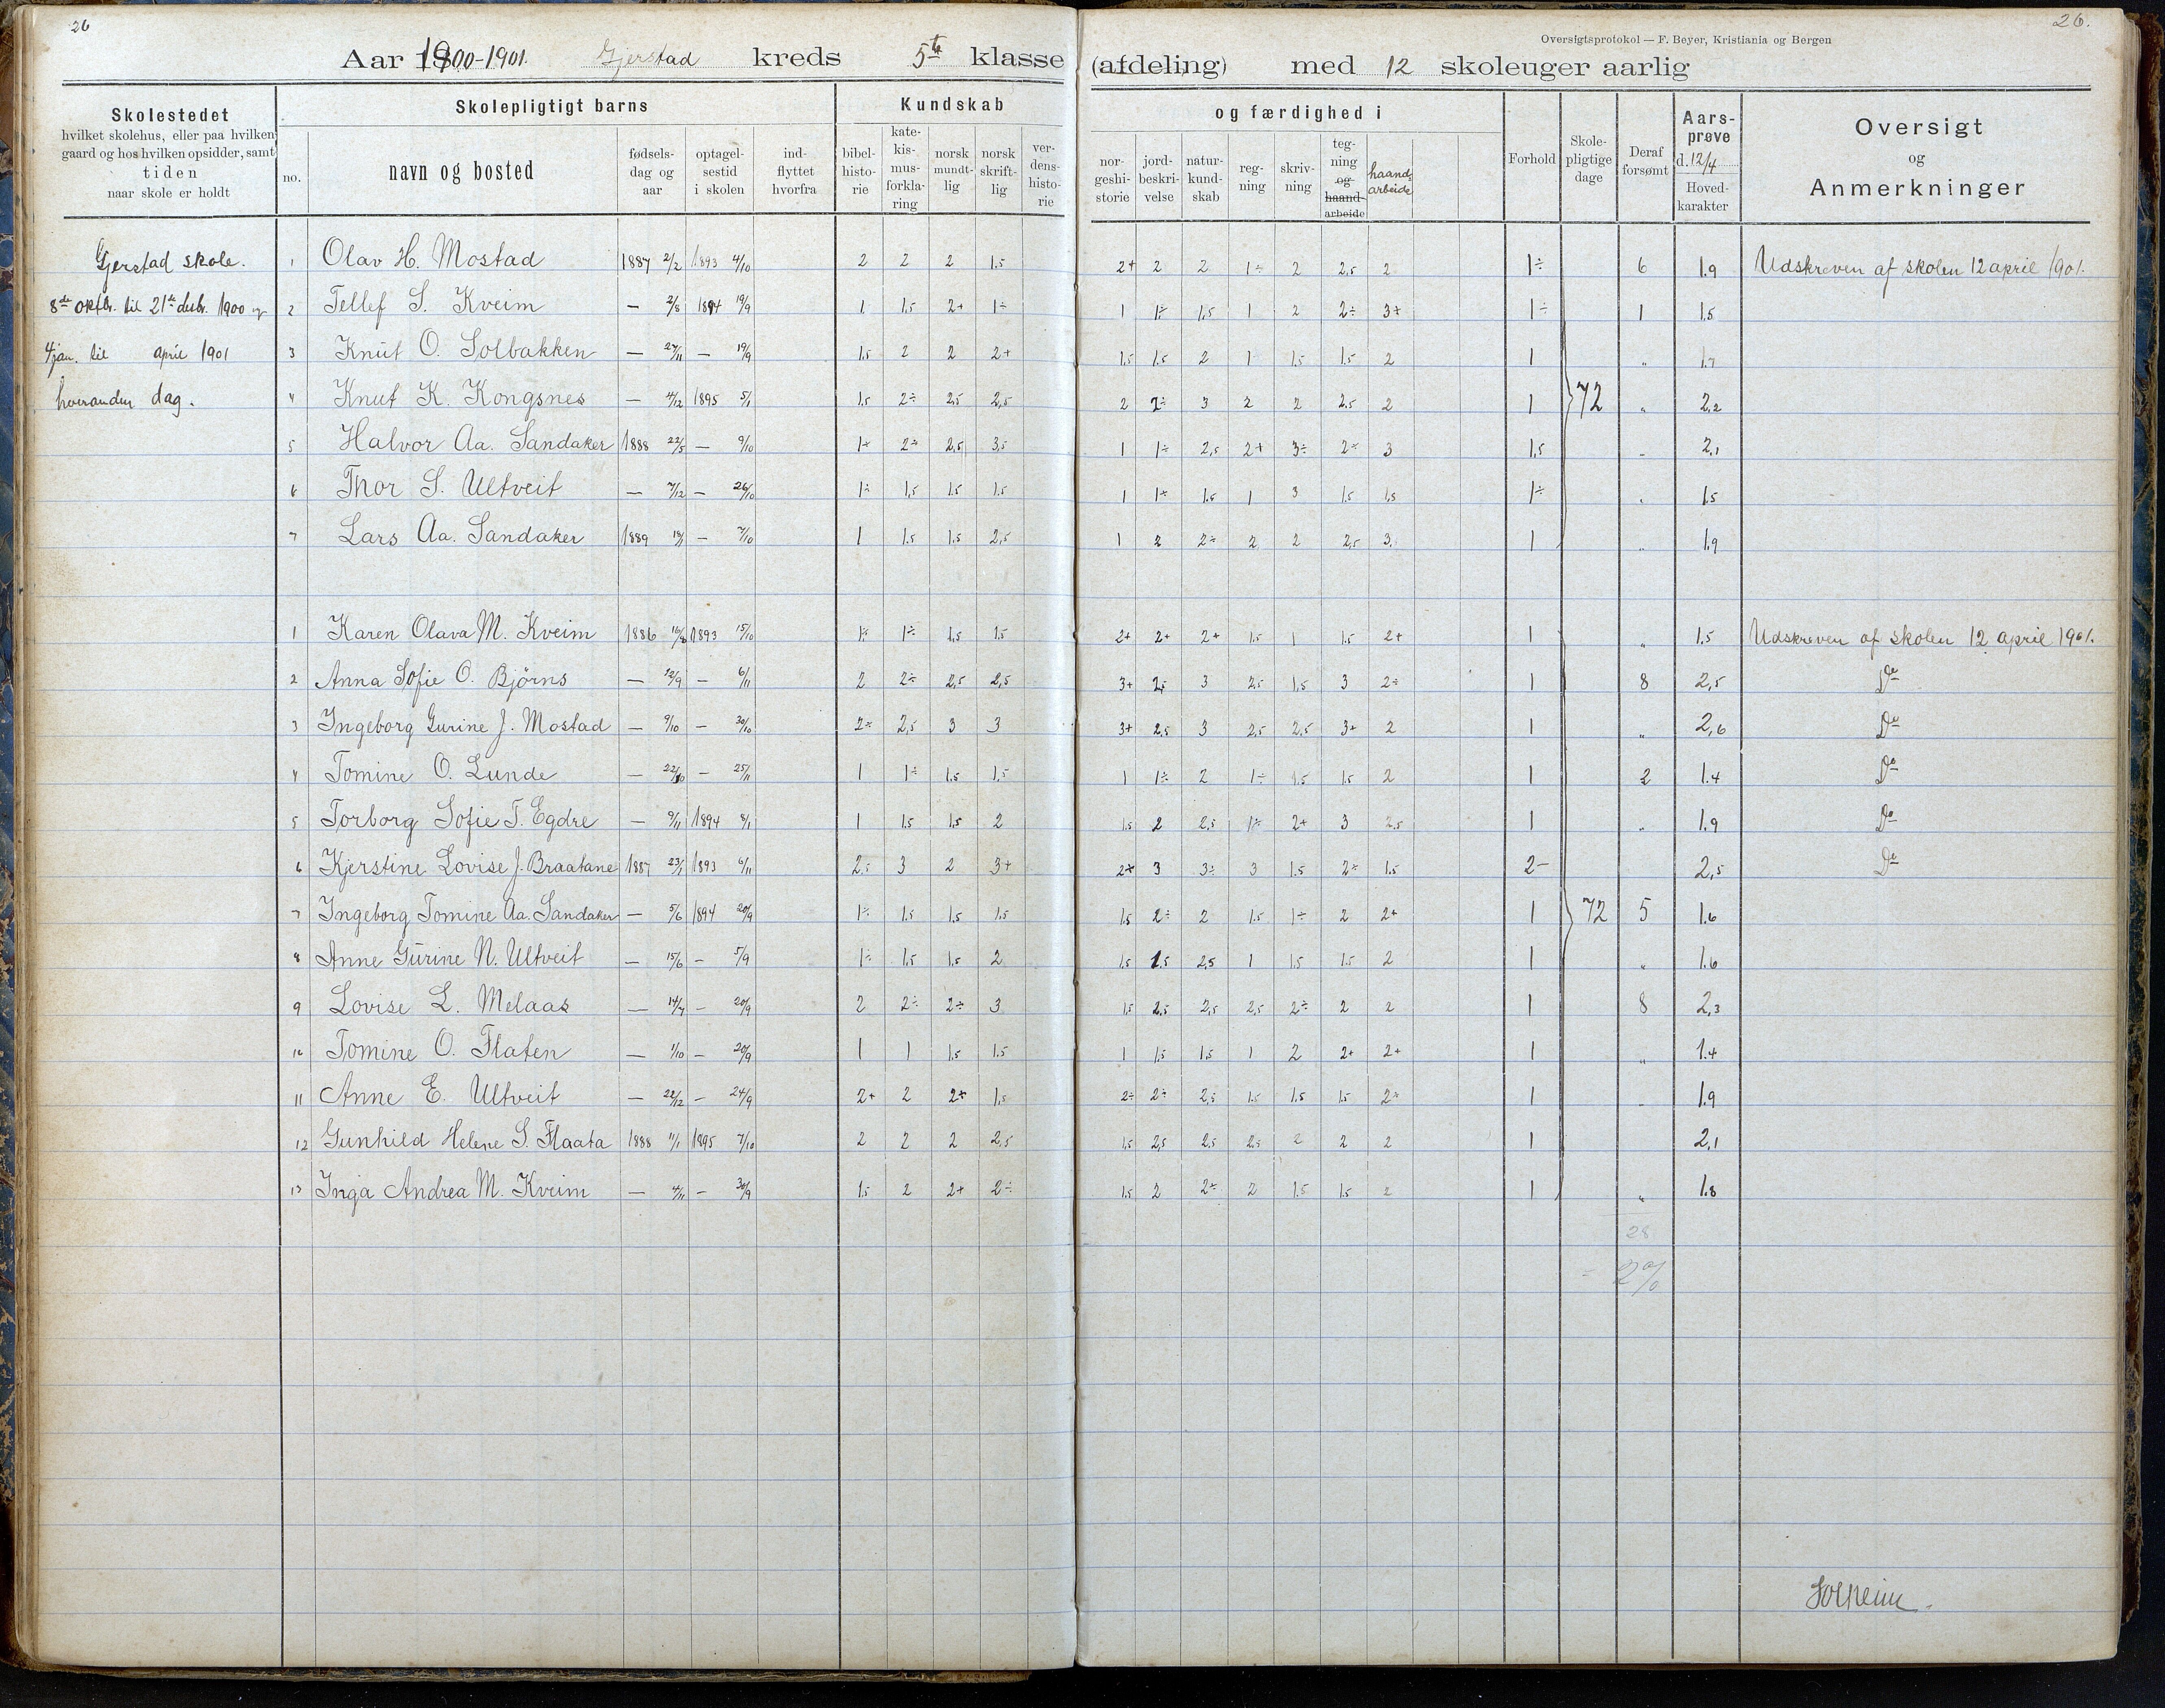 26
26.
Oversigtsprotokol — F. Beyer, Kristiania og Bergen
Aar 1900-1901. Gjerstad kreds 5te klasse (afdeling) med 12 skoleuger aarlig
Skolestedet
hvilket skolehus, eller paa hvilken
gaard og hos hvilken opsidder, samt
tiden
naar skole er holdt
Skolepligtigt barns
no.
navn og bosted
fødsels-
dag og
aar
optagel-
sestid
i skolen
ind-
flyttet
hvorfra
Kundskab
bibel-
histo-
rie
kate-
kis-
mus-
forkla-
ring
norsk
mundt-
lig
norsk
skrift-
lig
ver-
dens-
histo-
rie
og færdighed i
nor-
geshi-
storie
jord-
beskri-
velse
natur-
kund-
skab
reg-
ning
skriv-
ning
teg-
ning
og
haand-
arbeide
haand-
arbeide
Forhold
Skole-
pligtige
dage
Deraf
forsømt
Aars-
prøve
d. 12/4
Hoved-
karakter
Oversigt
og
Anmerkninger
Gjerstad skole.
8de oktbr. til 21de desbr. 1900 og
4 jan. til april 1901
hveranden dag.
1 Olav H. Mostad 1887 2/2 1893 4/10 2 2 2 1.5 2+ 2 2 1÷ 2 2,5 2 1÷ 6 1.9 Udskreven af skolen 12 april 1901.
2 Tellef S. Kveim — 2/8 1894 19/9 1 1.5 2+ 1÷ 1 1÷ 1.5 1 2 2÷ 3+ 1÷ 1 1.5
3 Knut O. Solbakken — 27/11 — 19/9 1.5 2 2 2+ 1.5 1.5 2 1 1.5 1.5 2 1 " 1.7
4 Knut K. Kongsnes — 4/12 1895 5/1 1.5 2÷ 2.5 2,5 2 2÷ 3 2 2 2.5 2 1 72 " 2,2
5 Halvor Aa. Sandaker 1888 22/5 — 9/10 1÷ 2÷ 2,5 3,5 1 1÷ 2,5 2+ 3÷ 2÷ 3 1,5 " 2,1
6 Thor S. Ultveit — 7/12 — 26/10 1÷ 1,5 1.5 1.5 1 1÷ 1.5 1 3 1.5 1,5 1÷ " 1.5
7 Lars Aa. Sandaker 1889 — 7/10 1 1.5 1.5 2,5 1 2 2÷ 2 2 2,5 3 1 " 1.9
1 Karen Olava M. Kveim 1886 16/8 1893 15/10 1÷ 1÷ 1,5 1.5 2+ 2+ 2+ 1.5 1 1.5 2+ 1 " 1.5 Udskreven af skolen 12 april 1901.
2 Anna Sofie O. Bjørns — 12/9 — 6/11 2 2÷ 2,5 2,5 3+ 2,5 3 2,5 1.5 3 2÷ 1 8 2,5 Do
3 Ingeborg Gurine J. Mostad — 9/10 — 30/10 2÷ 2,5 3 3 3+ 2,5 3 2,5 2,5 3+ 2 1 " 2,6 Do
4 Tomine O. Lunde — 22/10 — 25/11 1 1÷ 1.5 1,5 1 1÷ 2 1÷ 1.5 1.5 2 1 2 1.4 Do
5 Torborg Sofie T. Egdre — 9/11 1894 8/1 1 1.5 1.5 2 1.5 2 2,5 1÷ 2+ 3 2,5 1 " 1.9 Do
6 Kjerstine Lovise J. Braatane 1887 23/1 1893 6/11 2,5 3 2 3+ 2+ 3 3÷ 3 1.5 2÷ 1.5 2- 2,5 Do
7 Ingeborg Tomine Aa. Sandaker — 5/6 1894 20/9 1÷ 1.5 1.5 1.5 1.5 2÷ 2 1.5 1÷ 2 2+ 1 72 5 1.6
8 Anne Gurine N. Ultveit — 15/6 — 5/9 1÷ 1.5 1.5 2 1.5 1.5 2,5 1 1.5 1.5 2 1 " 1.6
9 Lovise L. Melaas — 14/7 — 20/9 2 2÷ 2÷ 3 1.5 2.5 2,5 2,5 2÷ 2 2 1 8 2,3
10 Tomine O. Flaten — 1/10 — 20/9 1 1 1.5 1.5 1 1.5 1.5 1 2 2+ 2+ 1 " 1.4
11 Anne E. Ultveit — 22/12 — 24/9 2+ 2 2+ 1.5 2÷ 2÷ 2,5 1.5 1.5 1.5 2÷ 1 " 1.9
12 Gunhild Helene S. Flaata 1888 11/1 1895 7/10 2 2 2 2,5 1.5 2,5 2,5 2,5 2 2 2 1 2,1
13 Inga Andrea M. Kveim — 4/11 — 30/9 1.5 2 2+ 2÷ 1.5 2 2÷ 2 1.5 1.5 2 1 " 1.8
28
= 2%
Solheim.